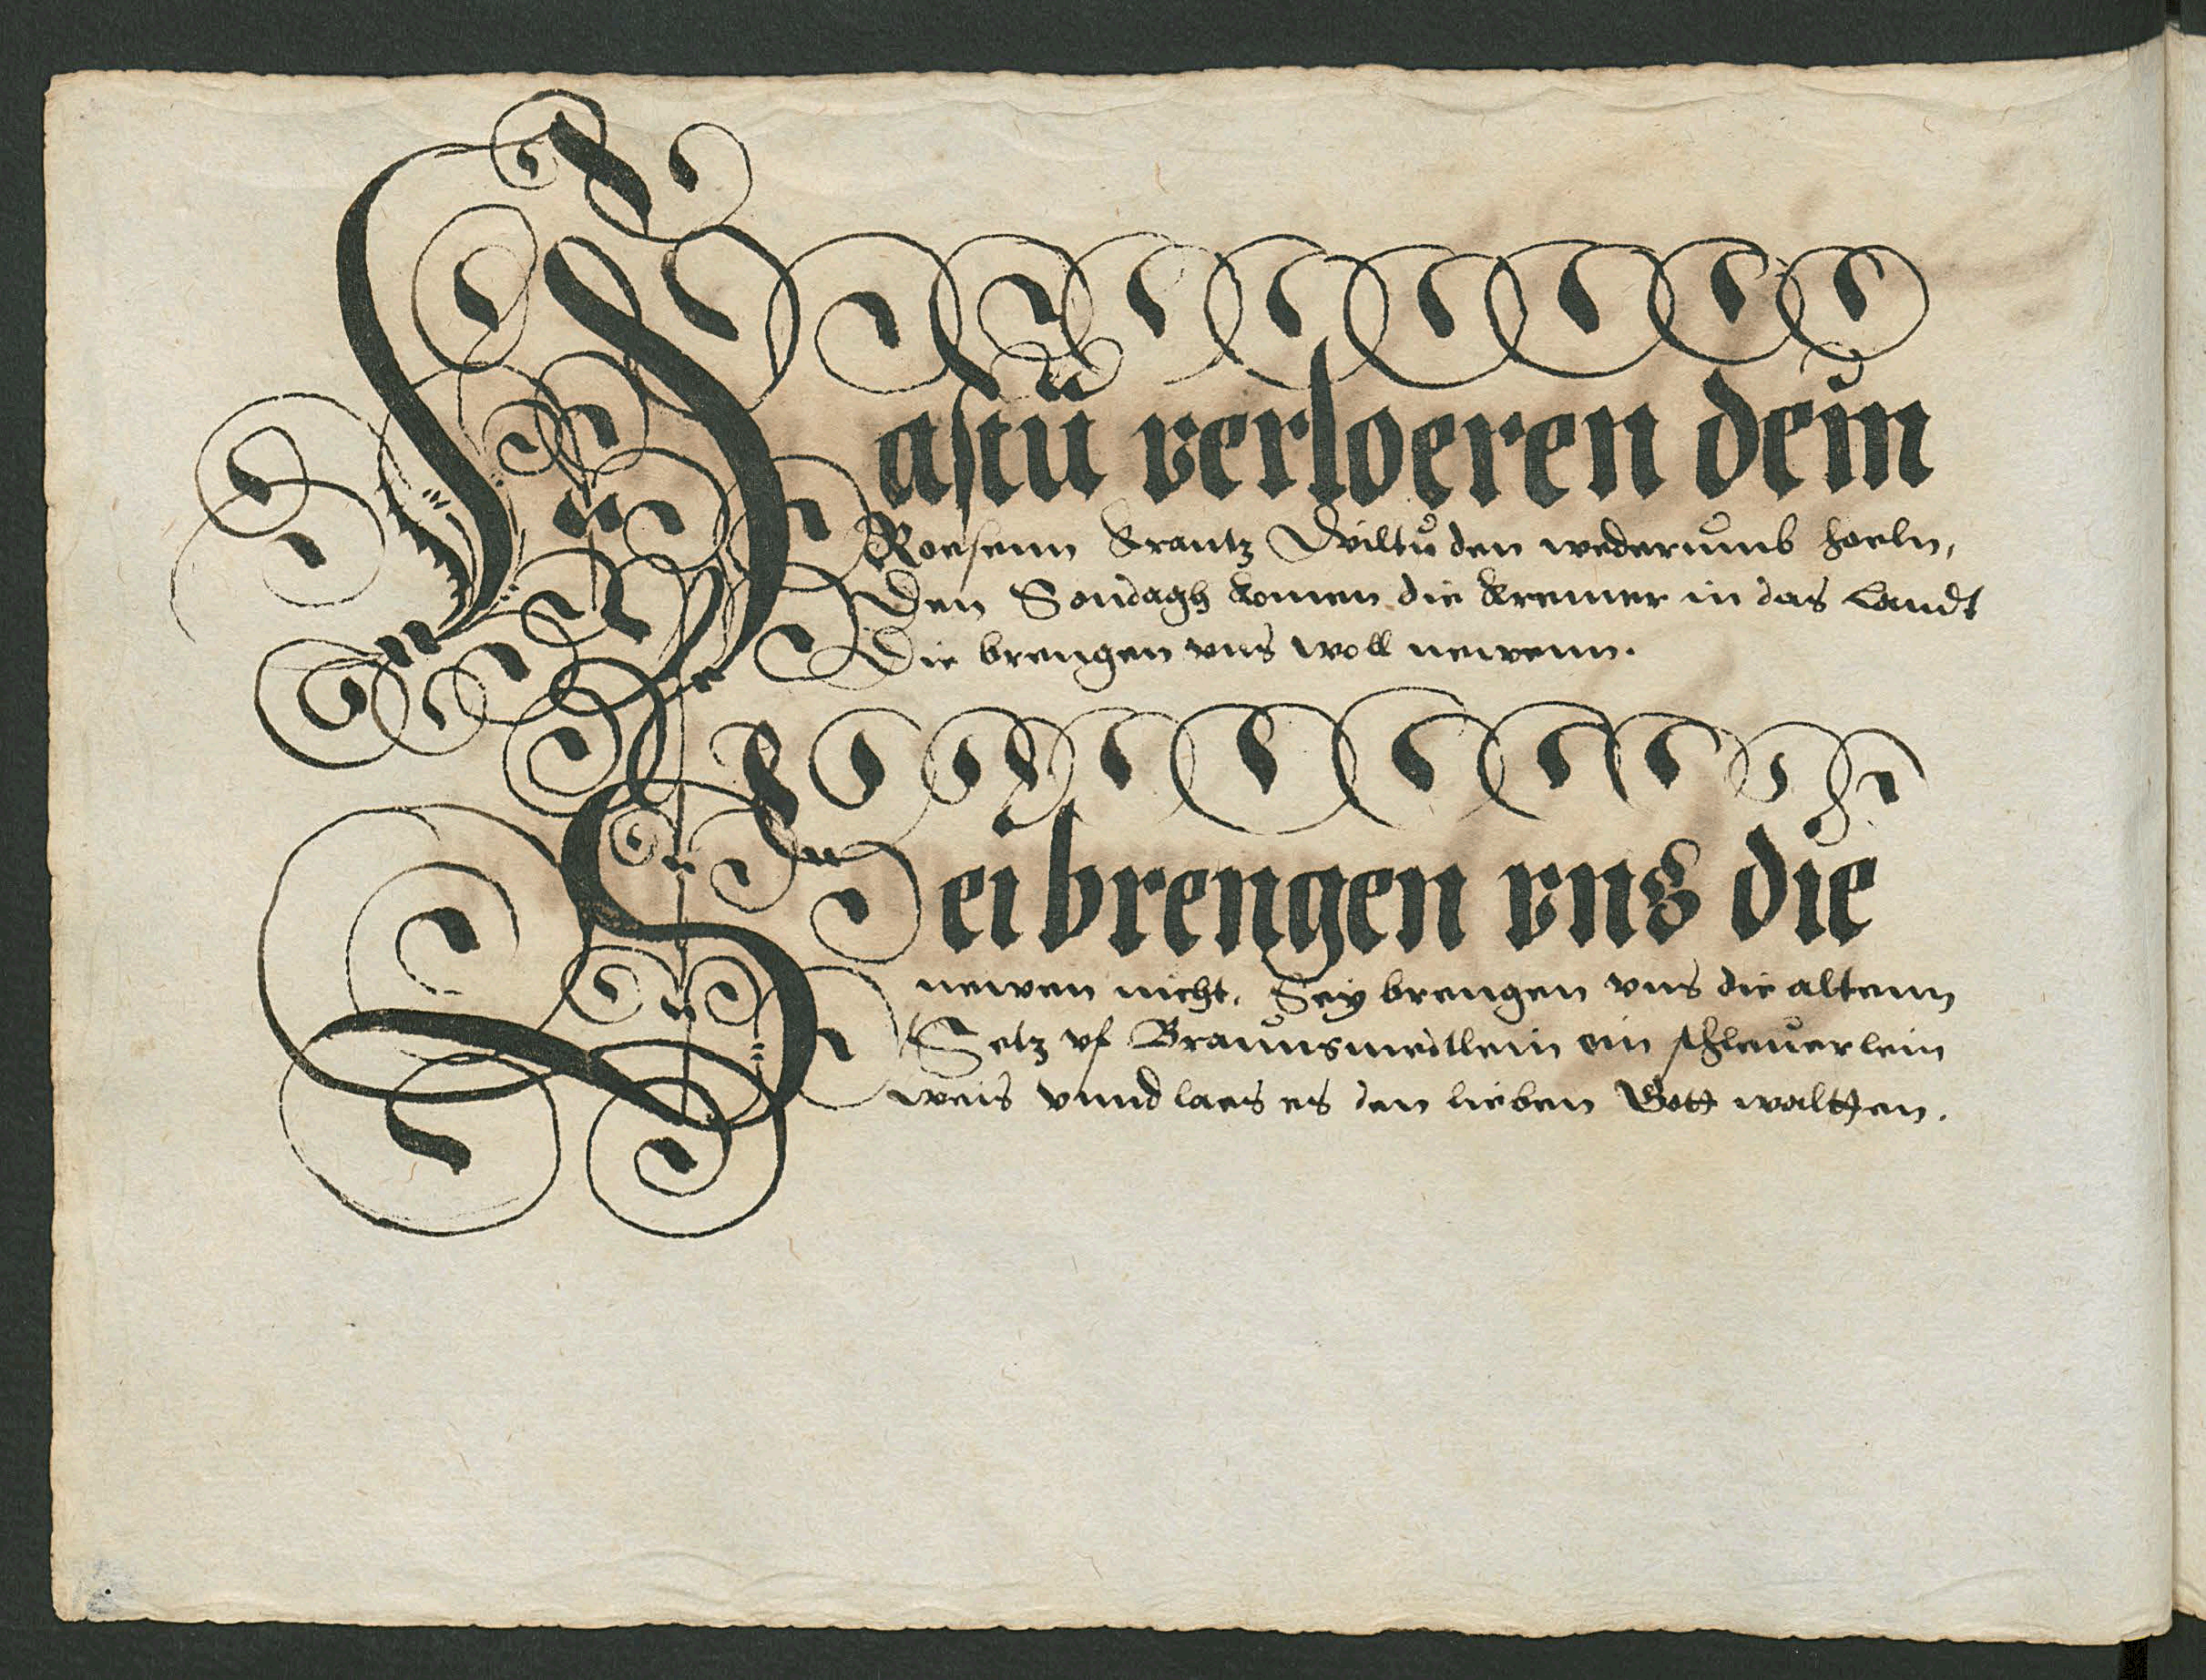 Hastŭ verloeren dein
Roesenn Krantz Wiltŭ den wederŭmb hoeln,
Den Sondagh komen die Kremer in das Landt
Die brengen vns woll newenn.
Sei brengen vns die
newen nicht, Sey brengen vns die altenn
Setz vf Braŭnsmeitlein ein schleŭerlein
weis vnnd laes es den lieben Gott waltten.